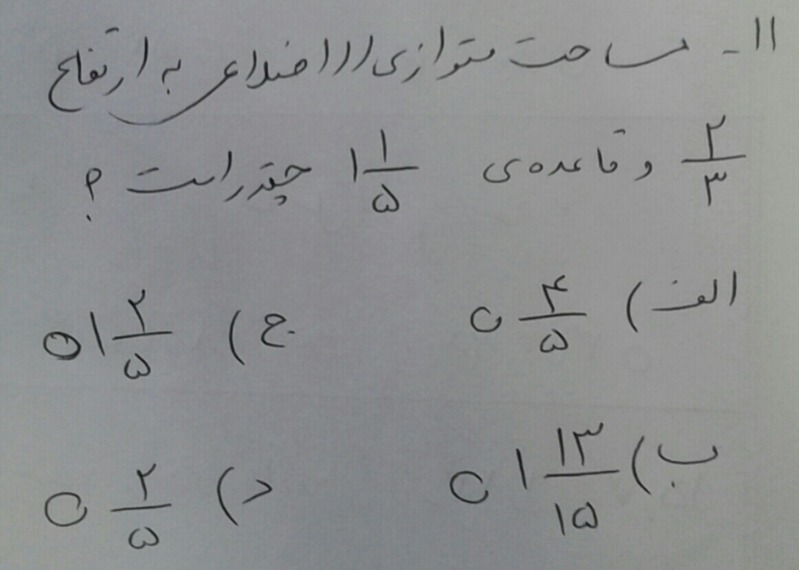 ۱۱- مساحت متوازی الاضلاع به ارتفاع
۲/۳ و قاعده‌ی ۱ ۱/۵ چقدر است ؟
الف) ۴/۵ ج) ۱ ۲/۵
ب) ۱ ۱۳/۱۵ د) ۲/۵